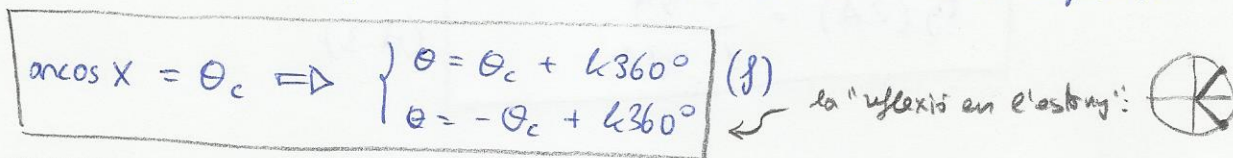 arccos X = θc ⇒ { θ = θc + k360°
θ = -θc + k360° (f)
la "reflexió en l'estany":